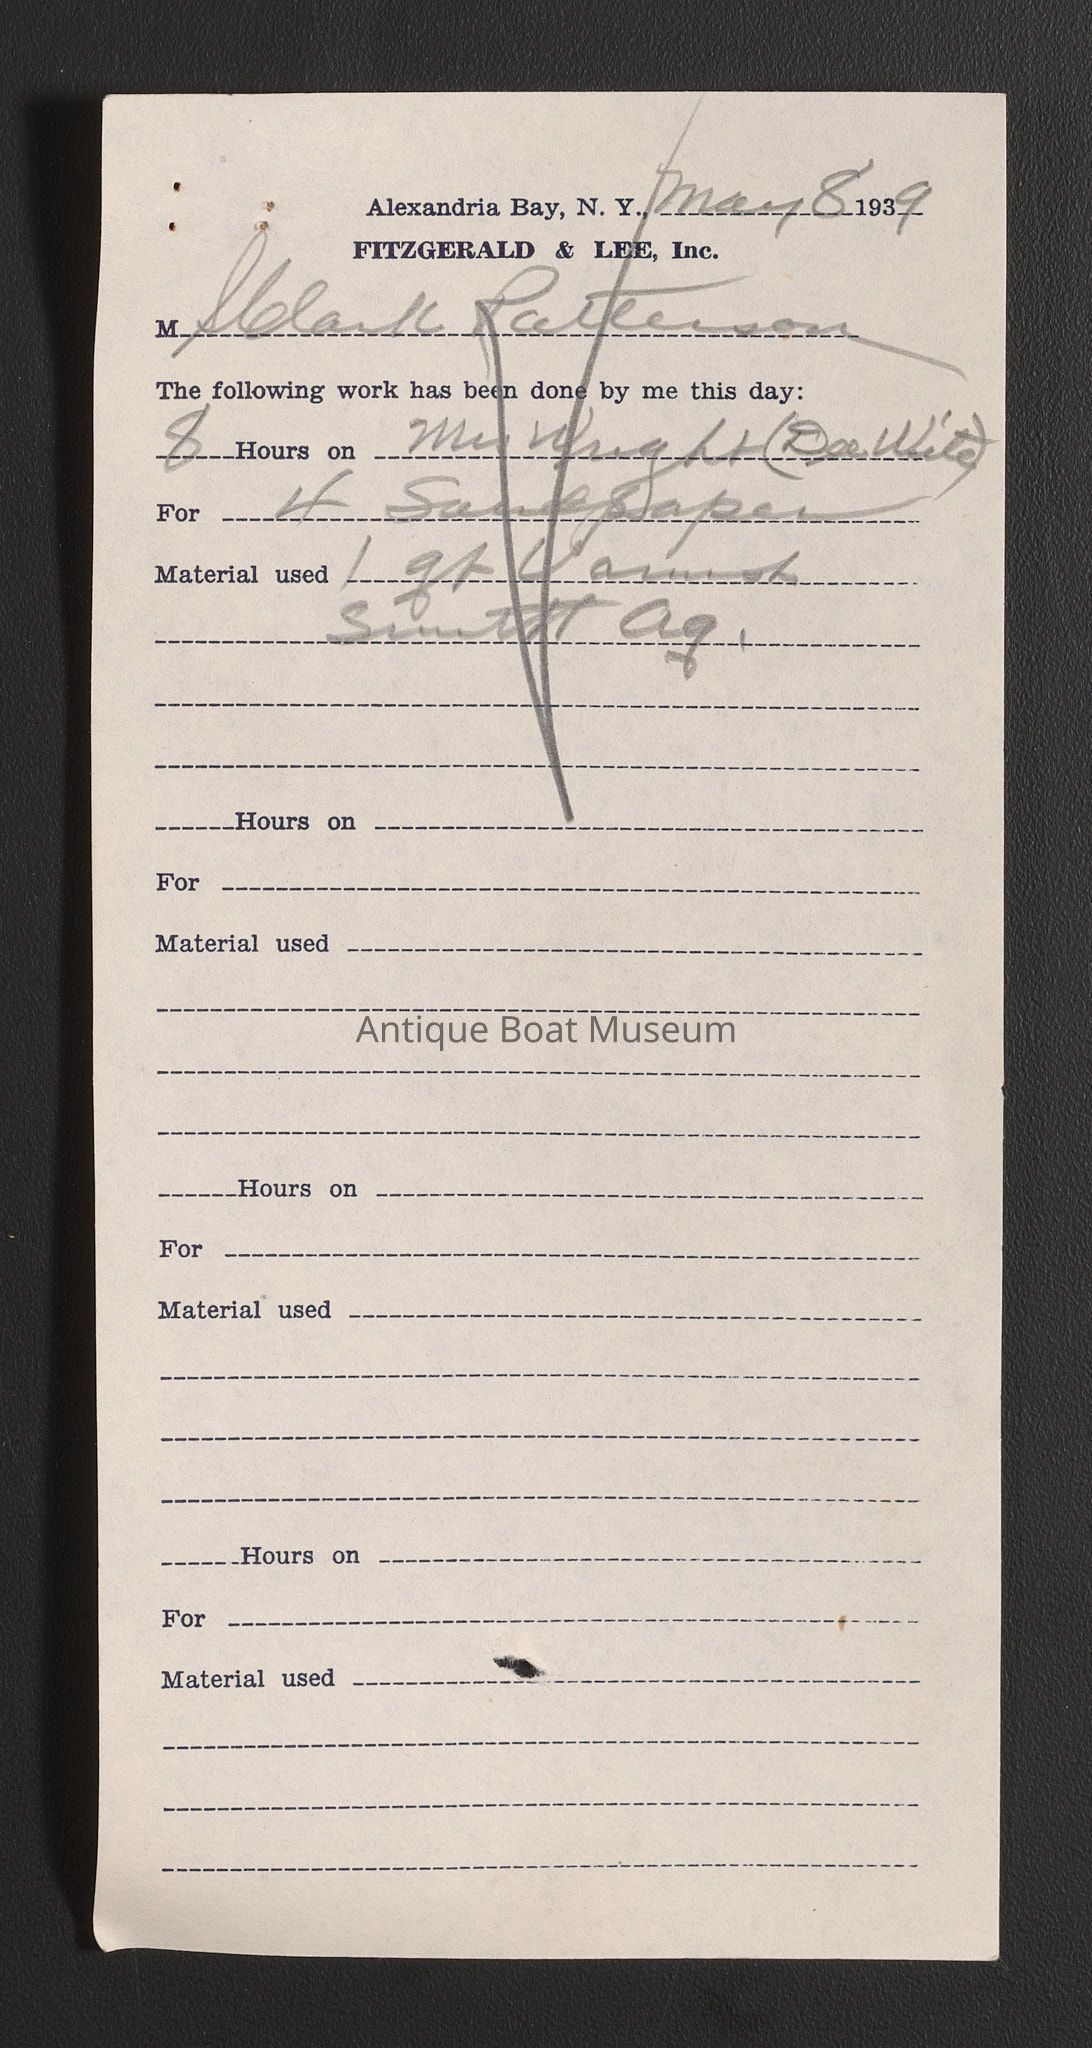 Alexandria Bay, N. Y., May 8 1939
FITZGERALD & LEE, Inc.
M Clark Patterson
The following work has been done by me this day:
8 Hours on Mr Wright (Dee Wite)
For 4 Sandpaper
Material used 1 qt Varnish
Smith Ag.
Hours on
For
Material used
Antique Boat Museum
Hours on
For
Material used
Hours on
For
Material used